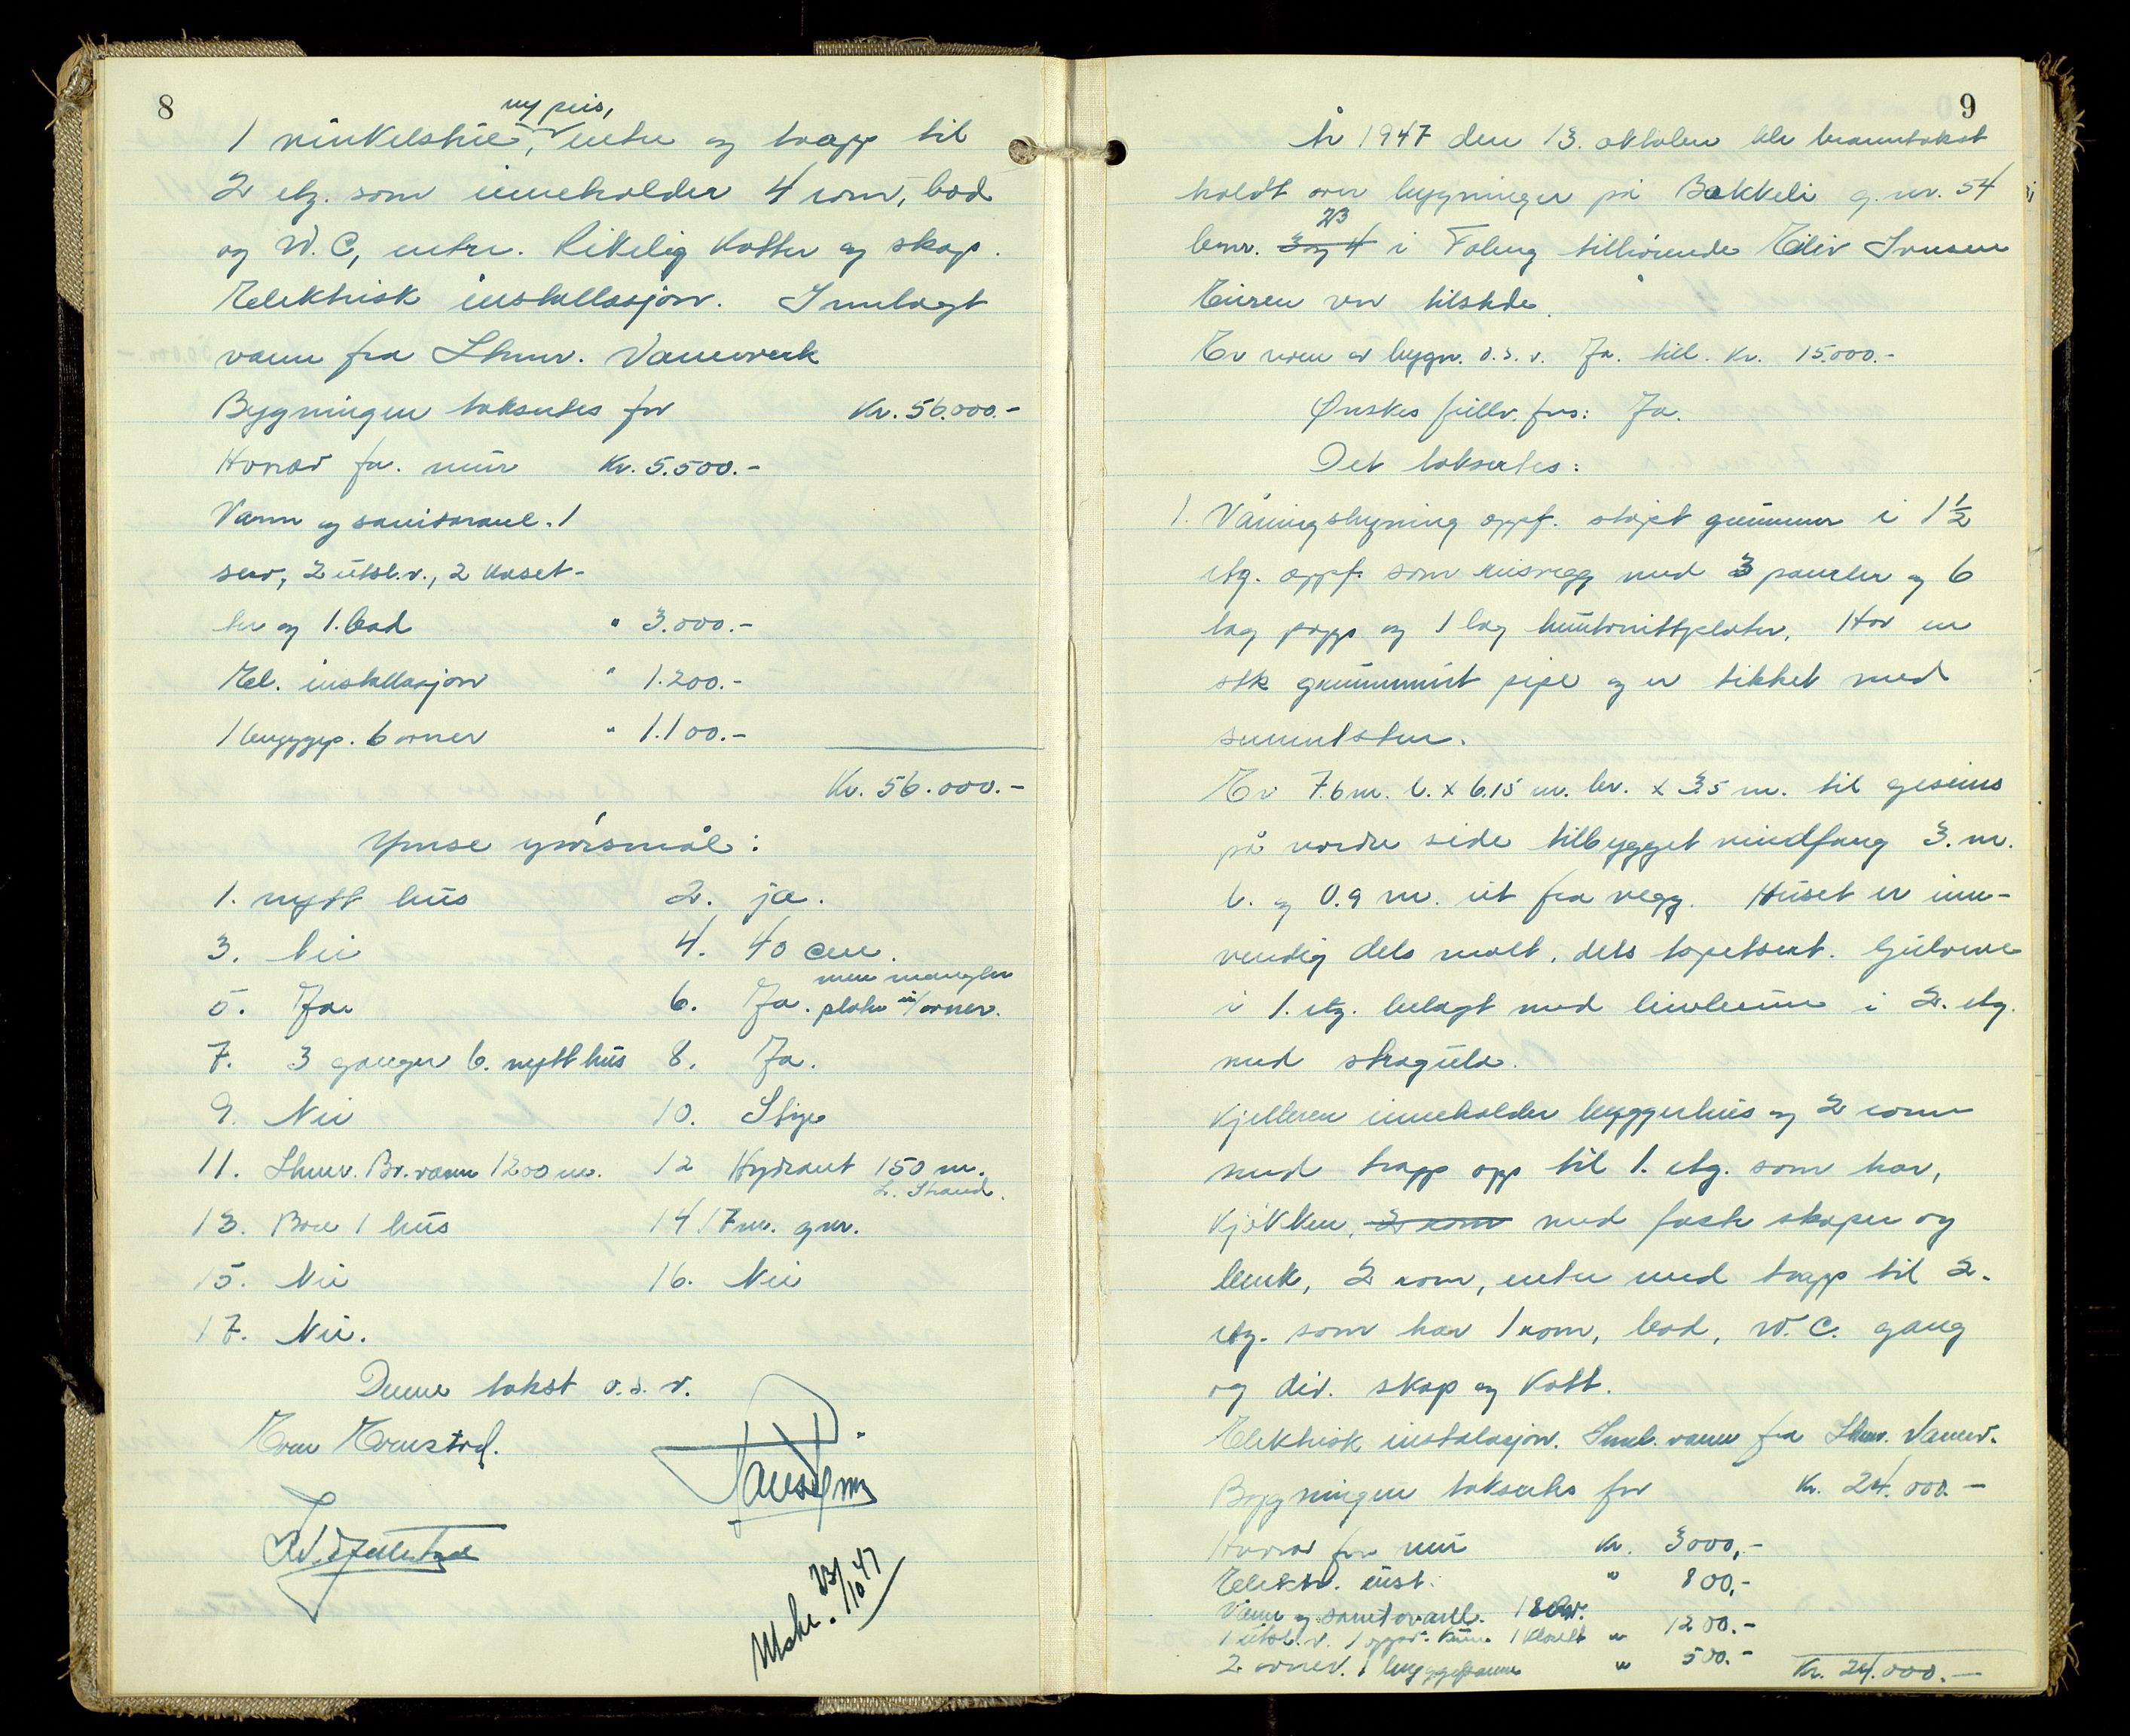 8
ny peis,
1 vinkelstue, entre og trapp til
2 etg. som inneholder 4 rom, bad
og W.C, entre. Rikelig kotter og skap.
Elektrisk installasjon. Innlagt
vann fra Lhmr. Vannverk
Bygningen takseres for Kr. 56.000.-
Hvorav for mur Kr. 5.500.-
Vann og sanitæranl. 1
serv, 2 utsl.v., 2 kloset-
ter og 1. bad " 3.000.-
El. installasjon " 1.200.-
1 bryggep. 6 ovner " 1.100.-
Kr. 56.000.-
Ymse spørsmål:
1. nytt hus 2. ja.
3. Nei 4. 40 cm.
men mangler
5. Ja 6. Ja. plate u/ovner.
7. 3 ganger 6. nytt hus 8. Ja.
9. Nei 10. Stige
11. Lhmr. Br.vann 1200 m. 12 Hydrant 150 m.
L. Strand.
13. Bare 1 hus 14 17 m. gnr.
15. Nei 16. Nei
17. Nei.
Denne takst o.s.v.
23/10 47
9
År 1947 den 13. oktober ble branntakst
holdt over bygninger på Bakkeli g.nr. 54
23
bnr. 3 og 4 i Fåberg tilhørende Eiliv Iversen
Eieren var tilstede.
Er noen av bygn. o.s.v. Ja. till. Kr. 15.000.-
Ønskes fullv. fors: Ja.
Det takseres:
1. Våningsbygning oppf. støpt grunnmur i 1½
etg. oppf. som reisvegg med 3 paneler og 6
lag papp og 1 lag huntonittplater. Har en
stk grunnmurt pipe og er tekket med
sementsten.
Er 7.6 m. l. x 6.15 m. br. x 3.5 m. til gesims
på nordre side tilbygget vindfang 3. m.
l. og 0.9 m. ut fra vegg. Huset er inn-
vendig dels malt, dels tapetsert. Gulvene
i 1. etg. belagt med linoleum i 2. etg.
med stragula.
Kjelleren inneholder bryggerhus og 2 rom
med trapp opp til 1. etg. som har,
kjøkken, 2 rom med faste skaper og
benk, 2 rom, entre med trapp til 2.
etg. som har 1 rom, bad, W.C. gang
og div. skap og kott.
Elektrisk instalasjon. Innl. vann fra Lhmr. Vannv.
Bygningen takseres for Kr. 24.000.-
Hvorav for mur Kr. 3000,-
Elektr. inst. " 800,-
Vann og sanitæranl. 1 serv.
1 utsl.v. 1 oppv. kum 1 klosett " 1200.-
2 ovner. 1 bryggepanne " 500.- Kr. 24.000.-